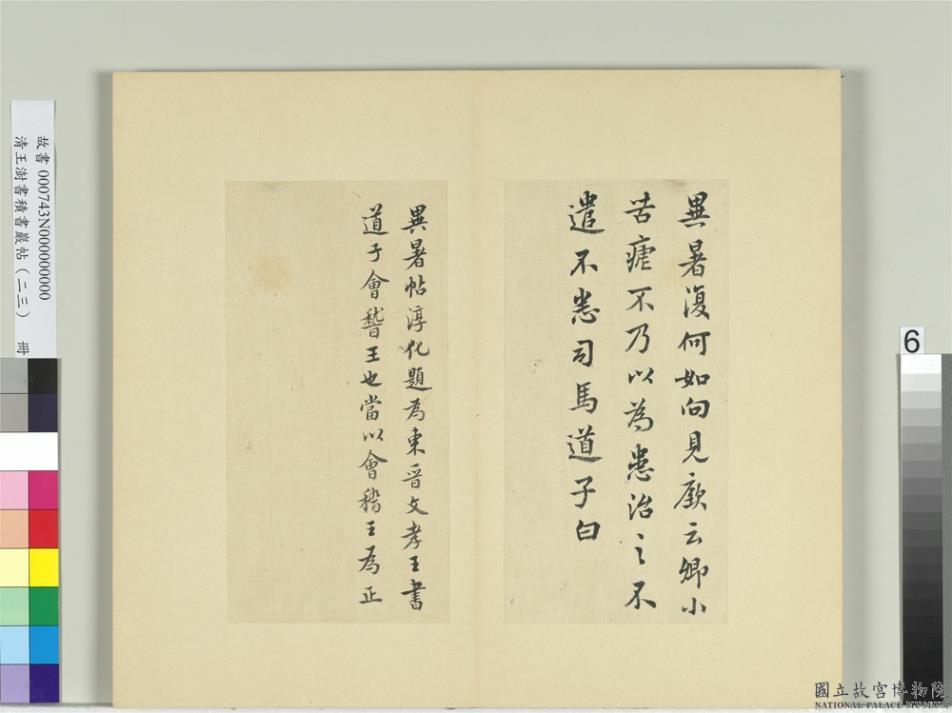 異暑復何如向見廞云卿小
苦瘧不乃以為患治之不
遣不恙司馬道子白
異暑帖淳化題為東晉文孝王書
道子會嵇王也當以會稽王為正
故書 000743N000000000
清王澍書積書巖帖(二三) 冊
6
國立故宮博物院
NATIONAL PALACE MUSEUM